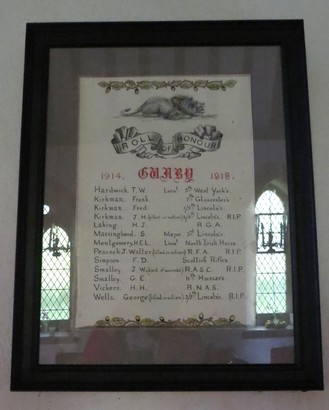 ROLL OF HONOUR
1914. GUNBY 1918.
Hardwick. T.W. Lieut 5th West York's
Kirkman. Frank. Gloucester's
Kirkman. Fred. Lincoln's
Kirkman. J.H. (killed in action) Lincoln's. R.I.P.
Laking. H.J. R.G.A.
Massingberd. S. Major 5th Lincoln's.
Montgomery. H.E.L. Lieut North Irish Horse.
Peacock. J. Walter (killed in action) R.F.A. R.I.P.
Simpson. F.D. Scottish Rifles
Smalley. J.W. (died of wounds) R.A.S.C. R.I.P.
Smalley. G.E. 11th Hussars
Vickers. H.H. R.N.A.S.
Wells. George (killed in action) Lincoln's. R.I.P.